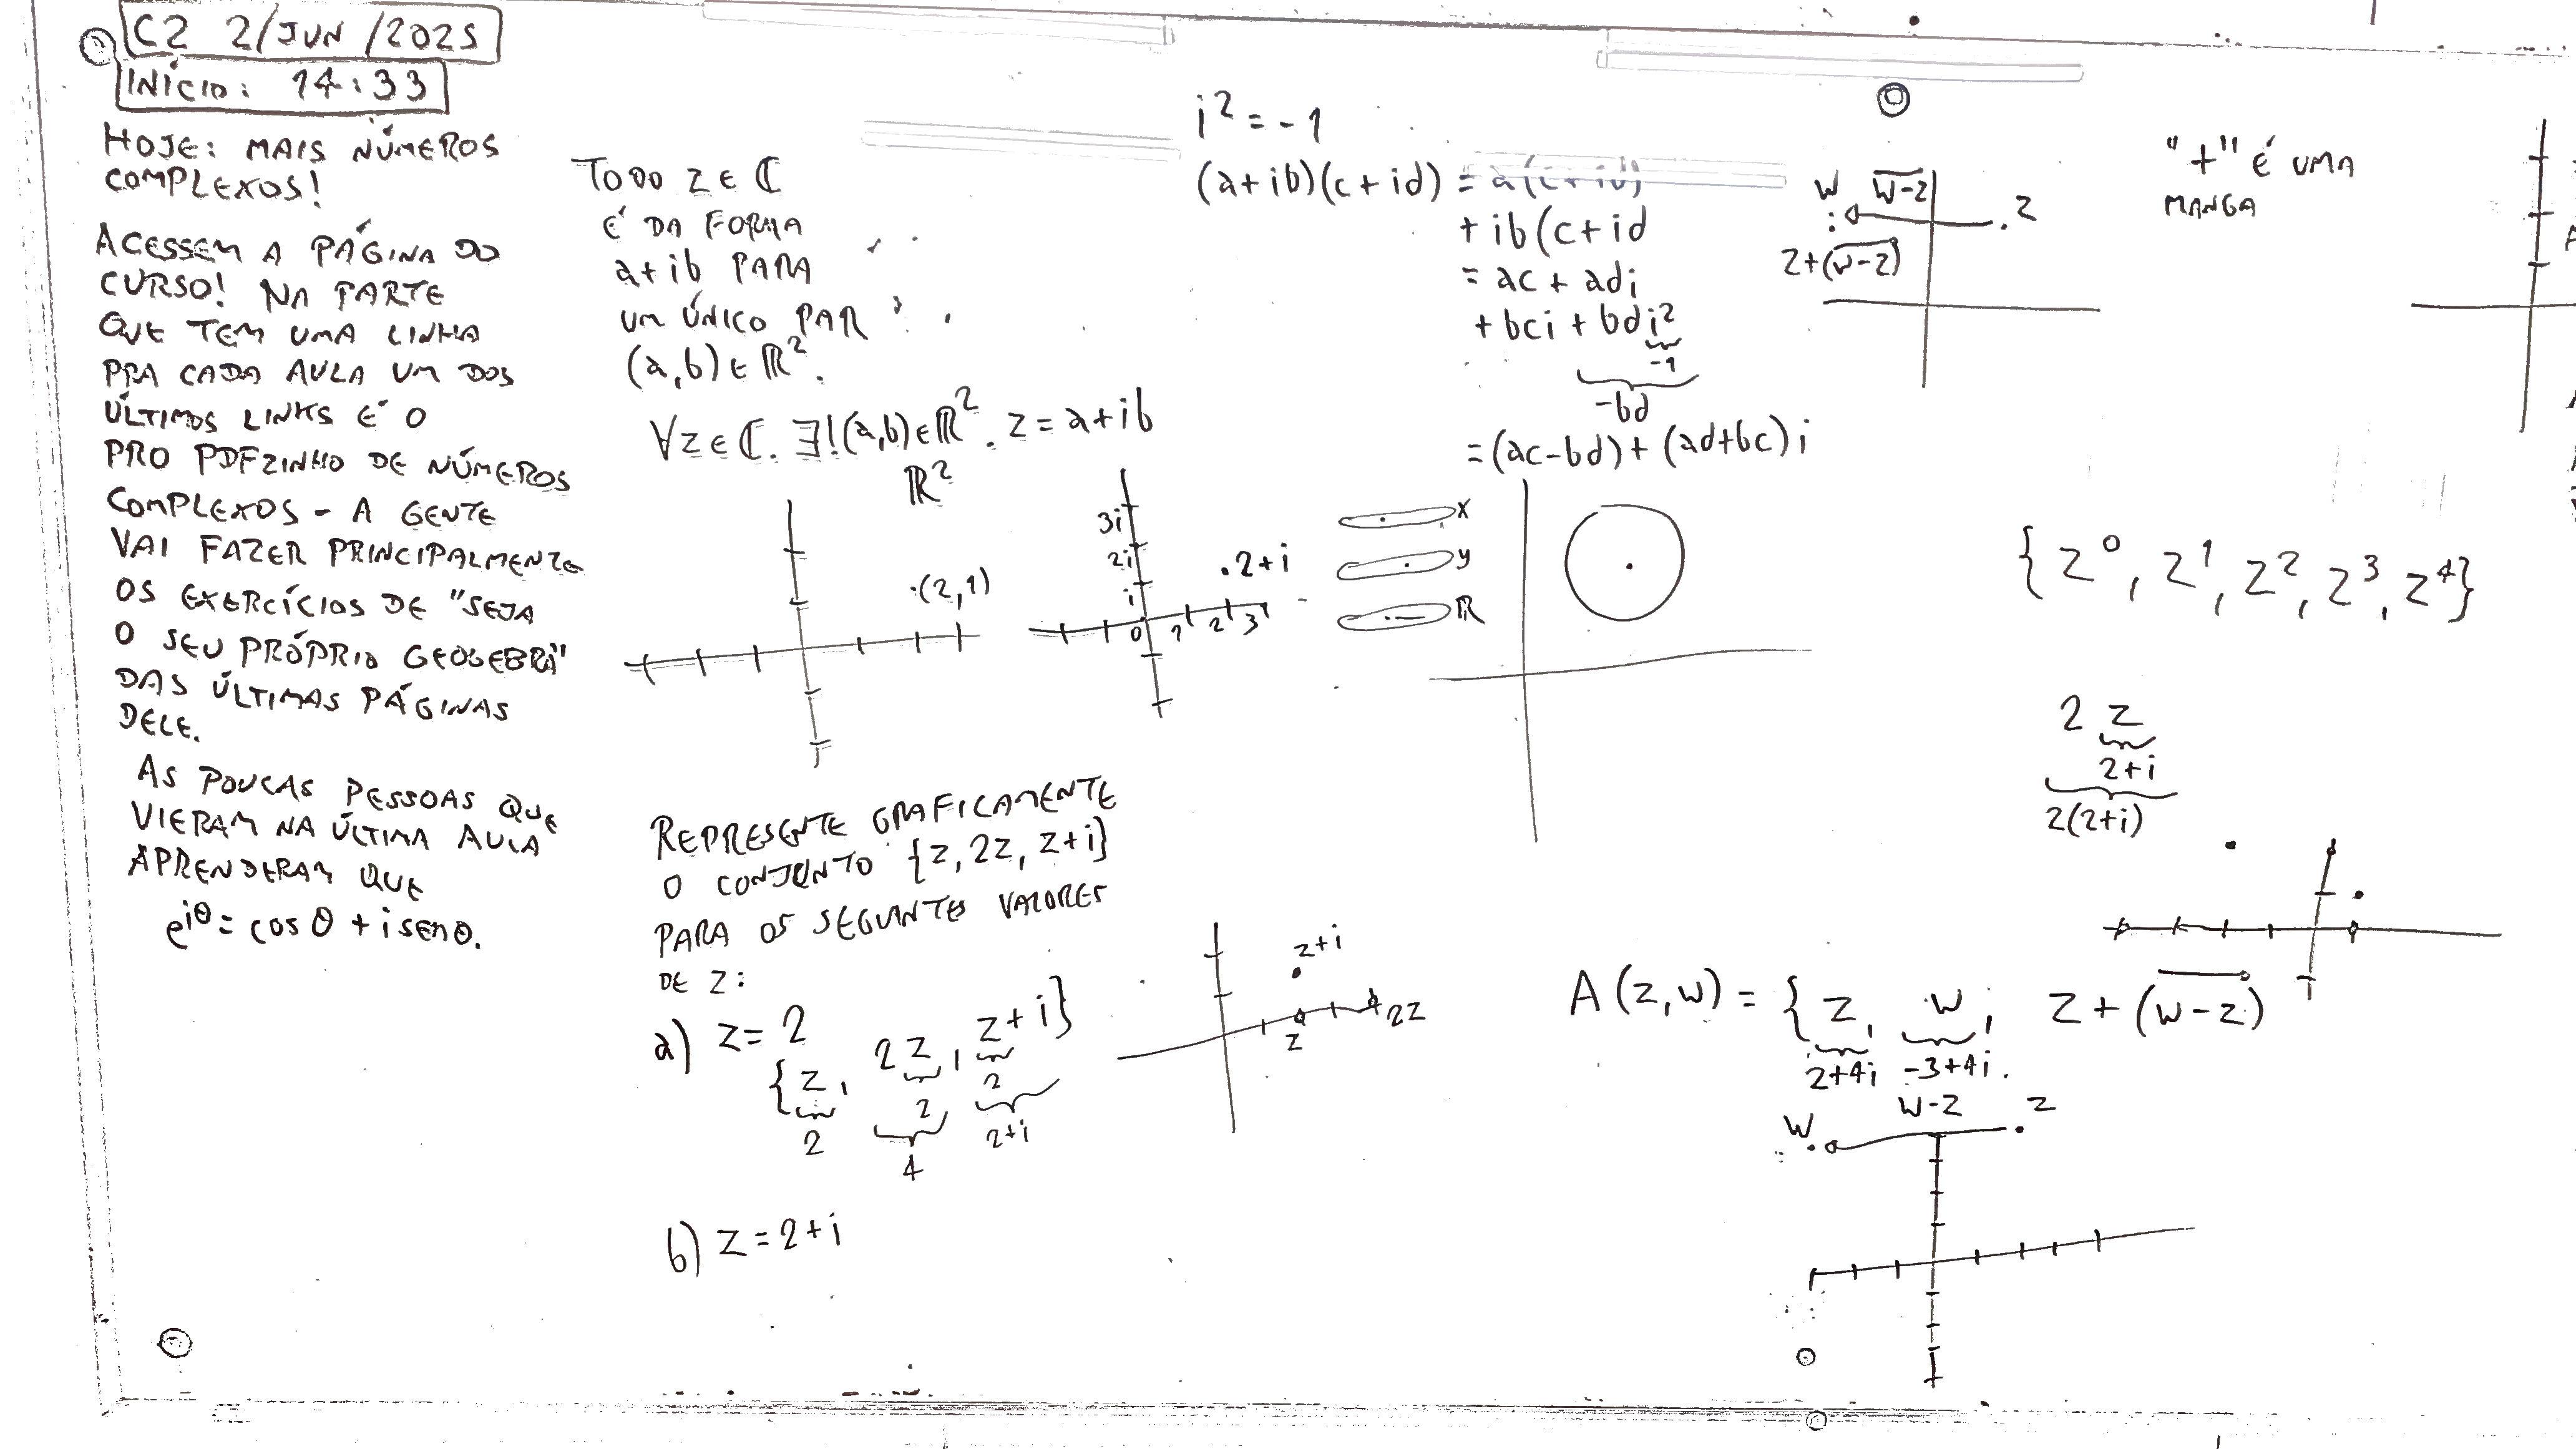 C2 2/JUN/2025
INÍCIO: 14:33
HOJE: MAIS NÚMEROS
COMPLEXOS!
ACESSEM A PÁGINA DO
CURSO! NA PARTE
QUE TEM UMA LINHA
PRA CADA AULA UM DOS
ÚLTIMOS LINKS É O
PRO PDFZINHO DE NÚMEROS
COMPLEXOS - A GENTE
VAI FAZER PRINCIPALMENTE
OS EXERCÍCIOS DE "SEJA
O SEU PRÓPRIO GEOGEBRA"
DAS ÚLTIMAS PÁGINAS
DELE.
AS POUCAS PESSOAS QUE
VIERAM NA ÚLTIMA AULA
APRENDERAM QUE
e^{iθ} = cos θ + i sen θ.
TODO z ∈ ℂ
É DA FORMA
a+ib PARA
UM ÚNICO PAR
(a,b) ∈ ℝ².
∀z∈ℂ. ∃!(a,b)∈ℝ². z = a+ib
ℝ²
(2,1)
3i
2i
i
0 1 2 3
2+i
x
y
ℝ
REPRESENTE GRAFICAMENTE
O CONJUNTO {z, 2z, z+i}
PARA OS SEGUINTES VALORES
DE z:
a) z = 2
{z, 2z, z+i}
2 2 2
4 2+i
z+i
z 2z
b) z = 2+i
i² = -1
(a+ib)(c+id) = a(c+id)
+ ib(c+id
= ac + adi
+ bci + bdi²
-1
-bd
= (ac-bd) + (ad+bc)i
w w-z z
z+(w-z)
"+" É UMA
MANGA
{z⁰, z¹, z², z³, z⁴}
2 z
2+i
2(2+i)
A(z,w) = {z, w, z+(w-z)
2+4i -3+4i
w w-z z